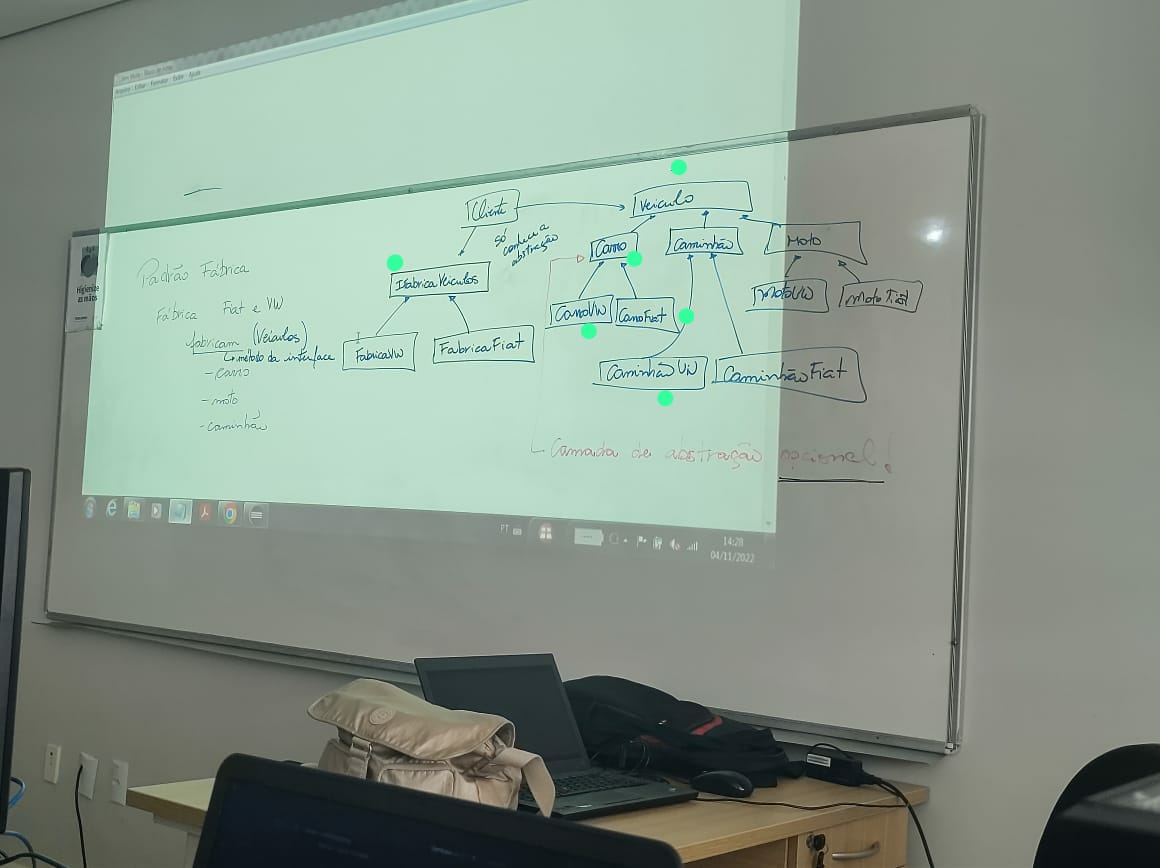 Arquivo Editar Formatar Exibir Ajuda
Higienize
as mãos
Padrão Fábrica
Fábrica Fiat e VW
fabricam (Veículos)
método da interface
- carro
- moto
- caminhão
Cliente
só
conhece a
abstração
IfabricaVeiculos
FabricaVW
FabricaFiat
Veículo
Carro
Caminhão
Moto
CarroVW
CarroFiat
MotoVW
MotoFiat
CaminhãoVW
CaminhãoFiat
Camada de abstração opcional!
PT
14:28
04/11/2022